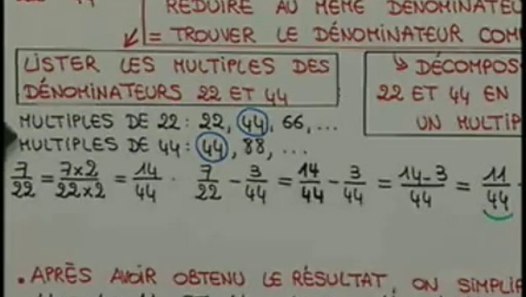 RÉDUIRE AU MÊME DÉNOMINATEU
= TROUVER LE DÉNOMINATEUR COM
LISTER LES MULTIPLES DES
DÉNOMINATEURS 22 ET 44
↳ DÉCOMPOS
22 ET 44 EN
UN MULTIP
MULTIPLES DE 22 : 22, 44, 66, ...
MULTIPLES DE 44 : 44, 88, ...
7/22 = 7×2/22×2 = 14/44 · 7/22 - 3/44 = 14/44 - 3/44 = 14-3/44 = 11/44
. APRÈS AVOIR OBTENU LE RÉSULTAT, ON SIMPLIF